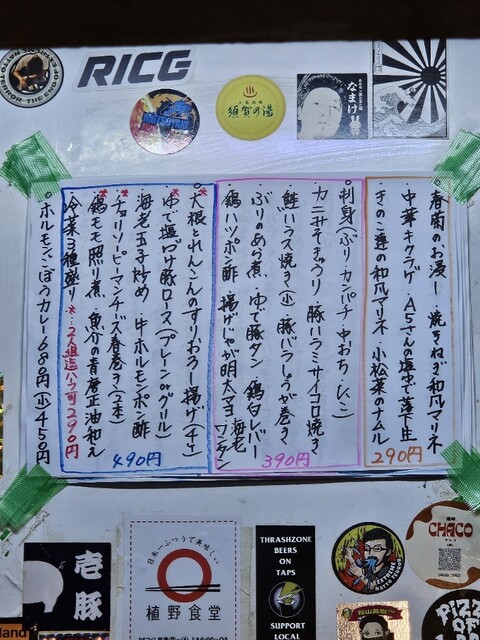 RICG
須賀の湯
なまけ
・春菊のお浸し ・焼きねぎ和風マリネ
・中華キクラゲ ・A5さんの塩ゆで落花生
・きのこ達の和風マリネ ・小松菜のナムル
290円
・刺身(ぶり・カンパチ・中おち・たこ)
・カニみそきゅうり ・豚ハラミサイコロ焼き
・鮭ハラス焼き(小) ・豚バラしょうが巻き
・ぶりのあら煮 ・ゆで豚タン ・鶏白レバー
・鶏ハツポン酢 ・揚げじゃが明太マヨ ・海老ワンタン
390円
・大根とれんこんのすりおろし揚げ(4ケ)
・ゆで塩づけ豚ロース(プレーンorグリル)
・海老玉子炒め ・牛ホルモンポン酢
・チョリソーピーマンチーズ春巻き(2本)
・鶏モモ照り煮 ・魚介の青唐正油和え
・冷菜3種盛り ※2人組迄ハーフ可290円
490円
・ホルモンごぼうカレー680円(小)450円
壱豚
日本一ふつうで美味しい
植野食堂
THRASHZONE
BEERS
ON
TAPS
SUPPORT
LOCAL
CHACO
PIZZA
OF